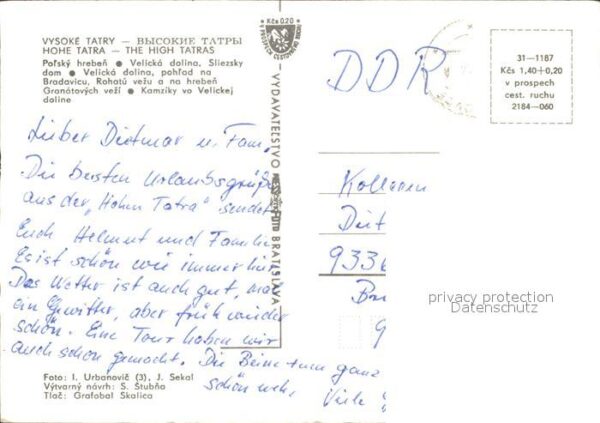 VYSOKÉ TATRY — ВЫСОКИЕ ТАТРЫ
HOHE TATRA — THE HIGH TATRAS
Poľský hrebeň ● Velická dolina, Sliezsky
dom ● Velická dolina, pohľad na
Bradavicu, Rohatú vežu a na hrebeň
Granátových veží ● Kamzíky vo Velickej
doline
Kčs 0,20
V PROSPECH CESTOVNÉHO RUCHU
VYDAVATEĽSTVO
BRATISLAVA
Lieber Dietmar u. Fam.
Die besten Urlaubsgrüße
aus der „Hohen Tatra" sendet
Euch Helmut und Familie
Es ist schön wie immer hier.
Das Wetter ist auch gut, mal
ein Gewitter, aber früh wieder
schön. Eine Tour haben wir
auch schon gemacht. Die Beine tun ganz
schön weh. Viele
Foto: I. Urbanovič (3), J. Sekal
Výtvarný návrh: S. Štubňa
Tlač: Grafobal Skalica
DDR
31—1187
Kčs 1,40+0,20
v prospech
cest. ruchu
2184—060
Diet
933
privacy protection
Datenschutz
9